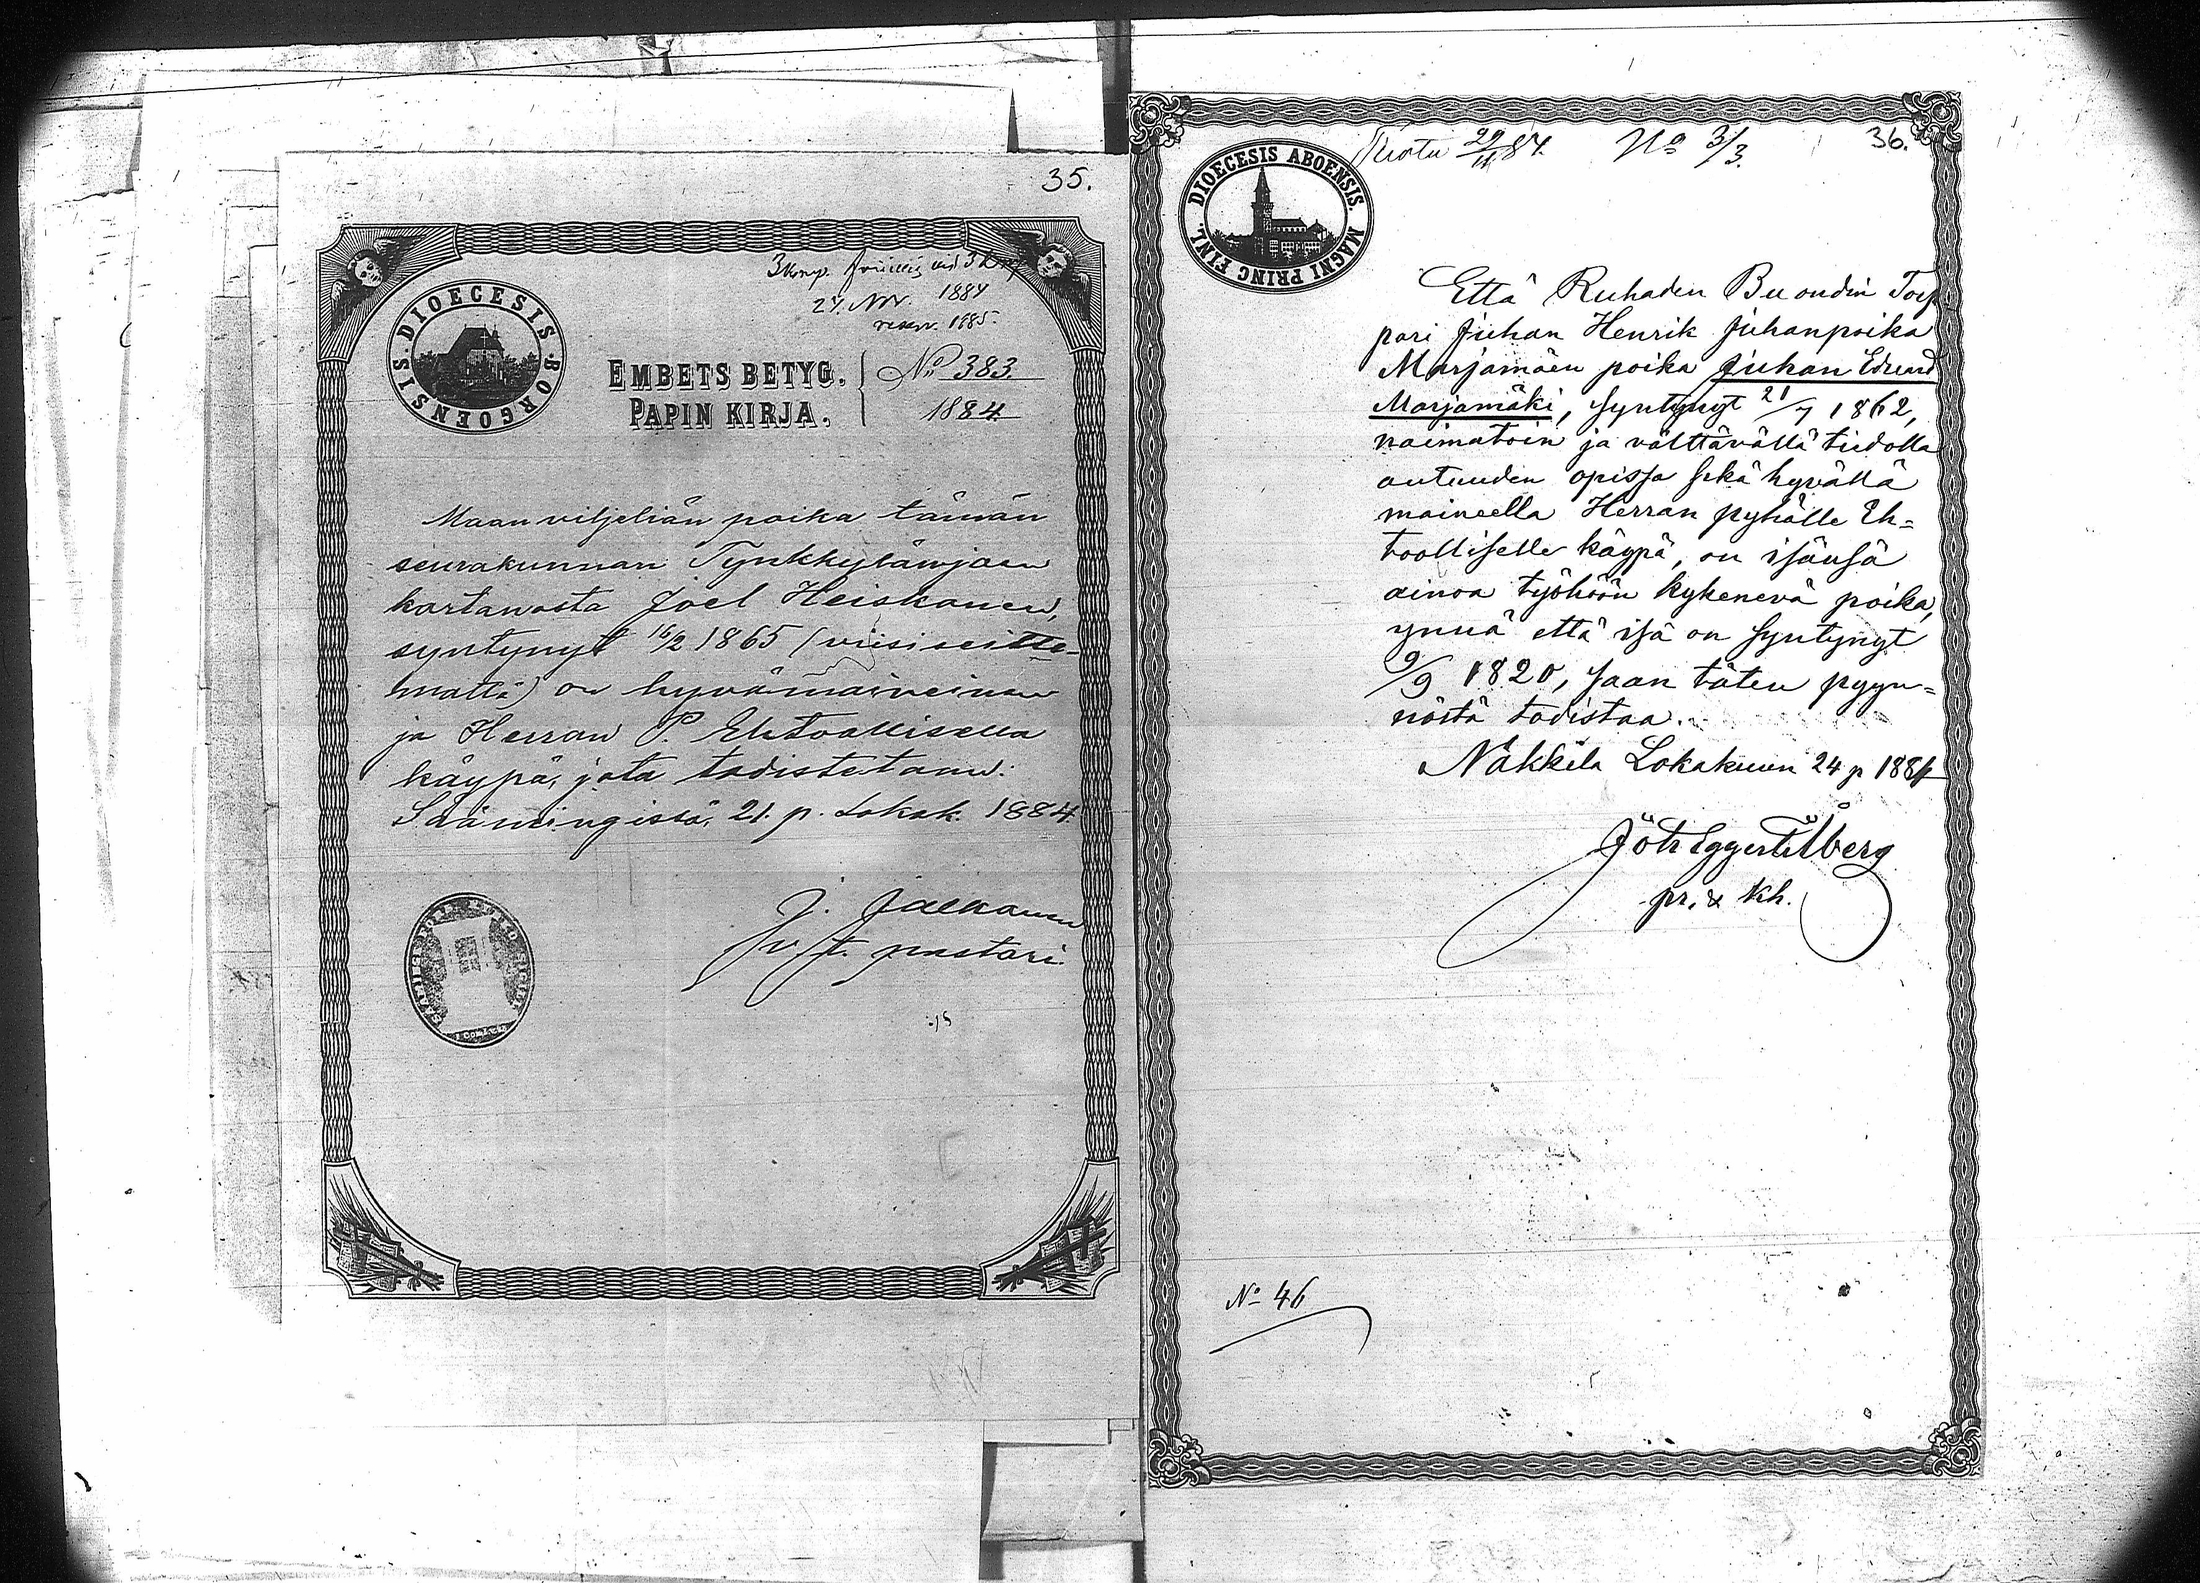 35.
3 komp.
24. Nov. 1884
reserv. 1885.
DIOECESIS BORGOENSIS.
EMBETS BETYG. No 383.
PAPIN KIRJA. 1884
Maanviljeliän poika tämän
seurakunnan Tynkkylänjoen
kartanosta Joel Heiskanen,
syntynyt 16/2 1865 (viisiseitte-
mättä) on hyvämaineinen
ja Herran P. Ehtoollisella
käypä, jota todistetaan:
Säämingissä, 21. p. Lokak. 1884.
J. Jalkanen
v. t. pastori.
36.
29/11 84. No 3/3.
DIOECESIS ABOENSIS. MAGNI PRINC FINL.
Että Ruhaden Buondin Torp
pari Juhan Henrik Juhanpoika
Marjamäen poika Juhan Edvard
Marjamäki, syntynyt 21/7 1862,
naimatoin ja välttävällä tiedolla
autuuden opissa sekä hyvällä
maineella Herran pyhälle Eh=
toolliselle käypä, on isänsä
ainoa työhön kykenevä poika,
ynnä että isä on syntynyt
9/9 1820, saan täten pyyn=
nöstä todistaa.
Nakkila Lokakuun 24 p 1884
Åberg
pr. & kkh.
No 46